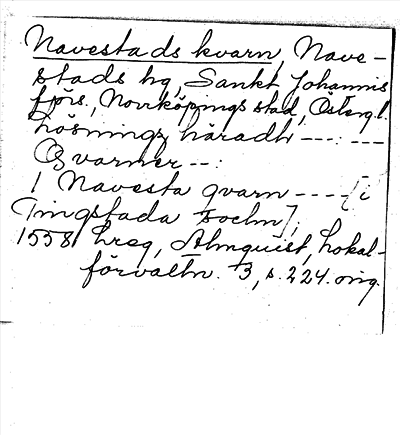 Navestads kvarn, Nave-
stads hg, Sankt Johannis
förs., Norrköpings stad, Österg.l.
Lösningz häradh ---: ---
Qvarner --:
1 Navesta qvarn ---- [i
Tingstada sochn];
1558 hreg, Almquist, Lokal-
förvaltn. 3, s. 224. orig.